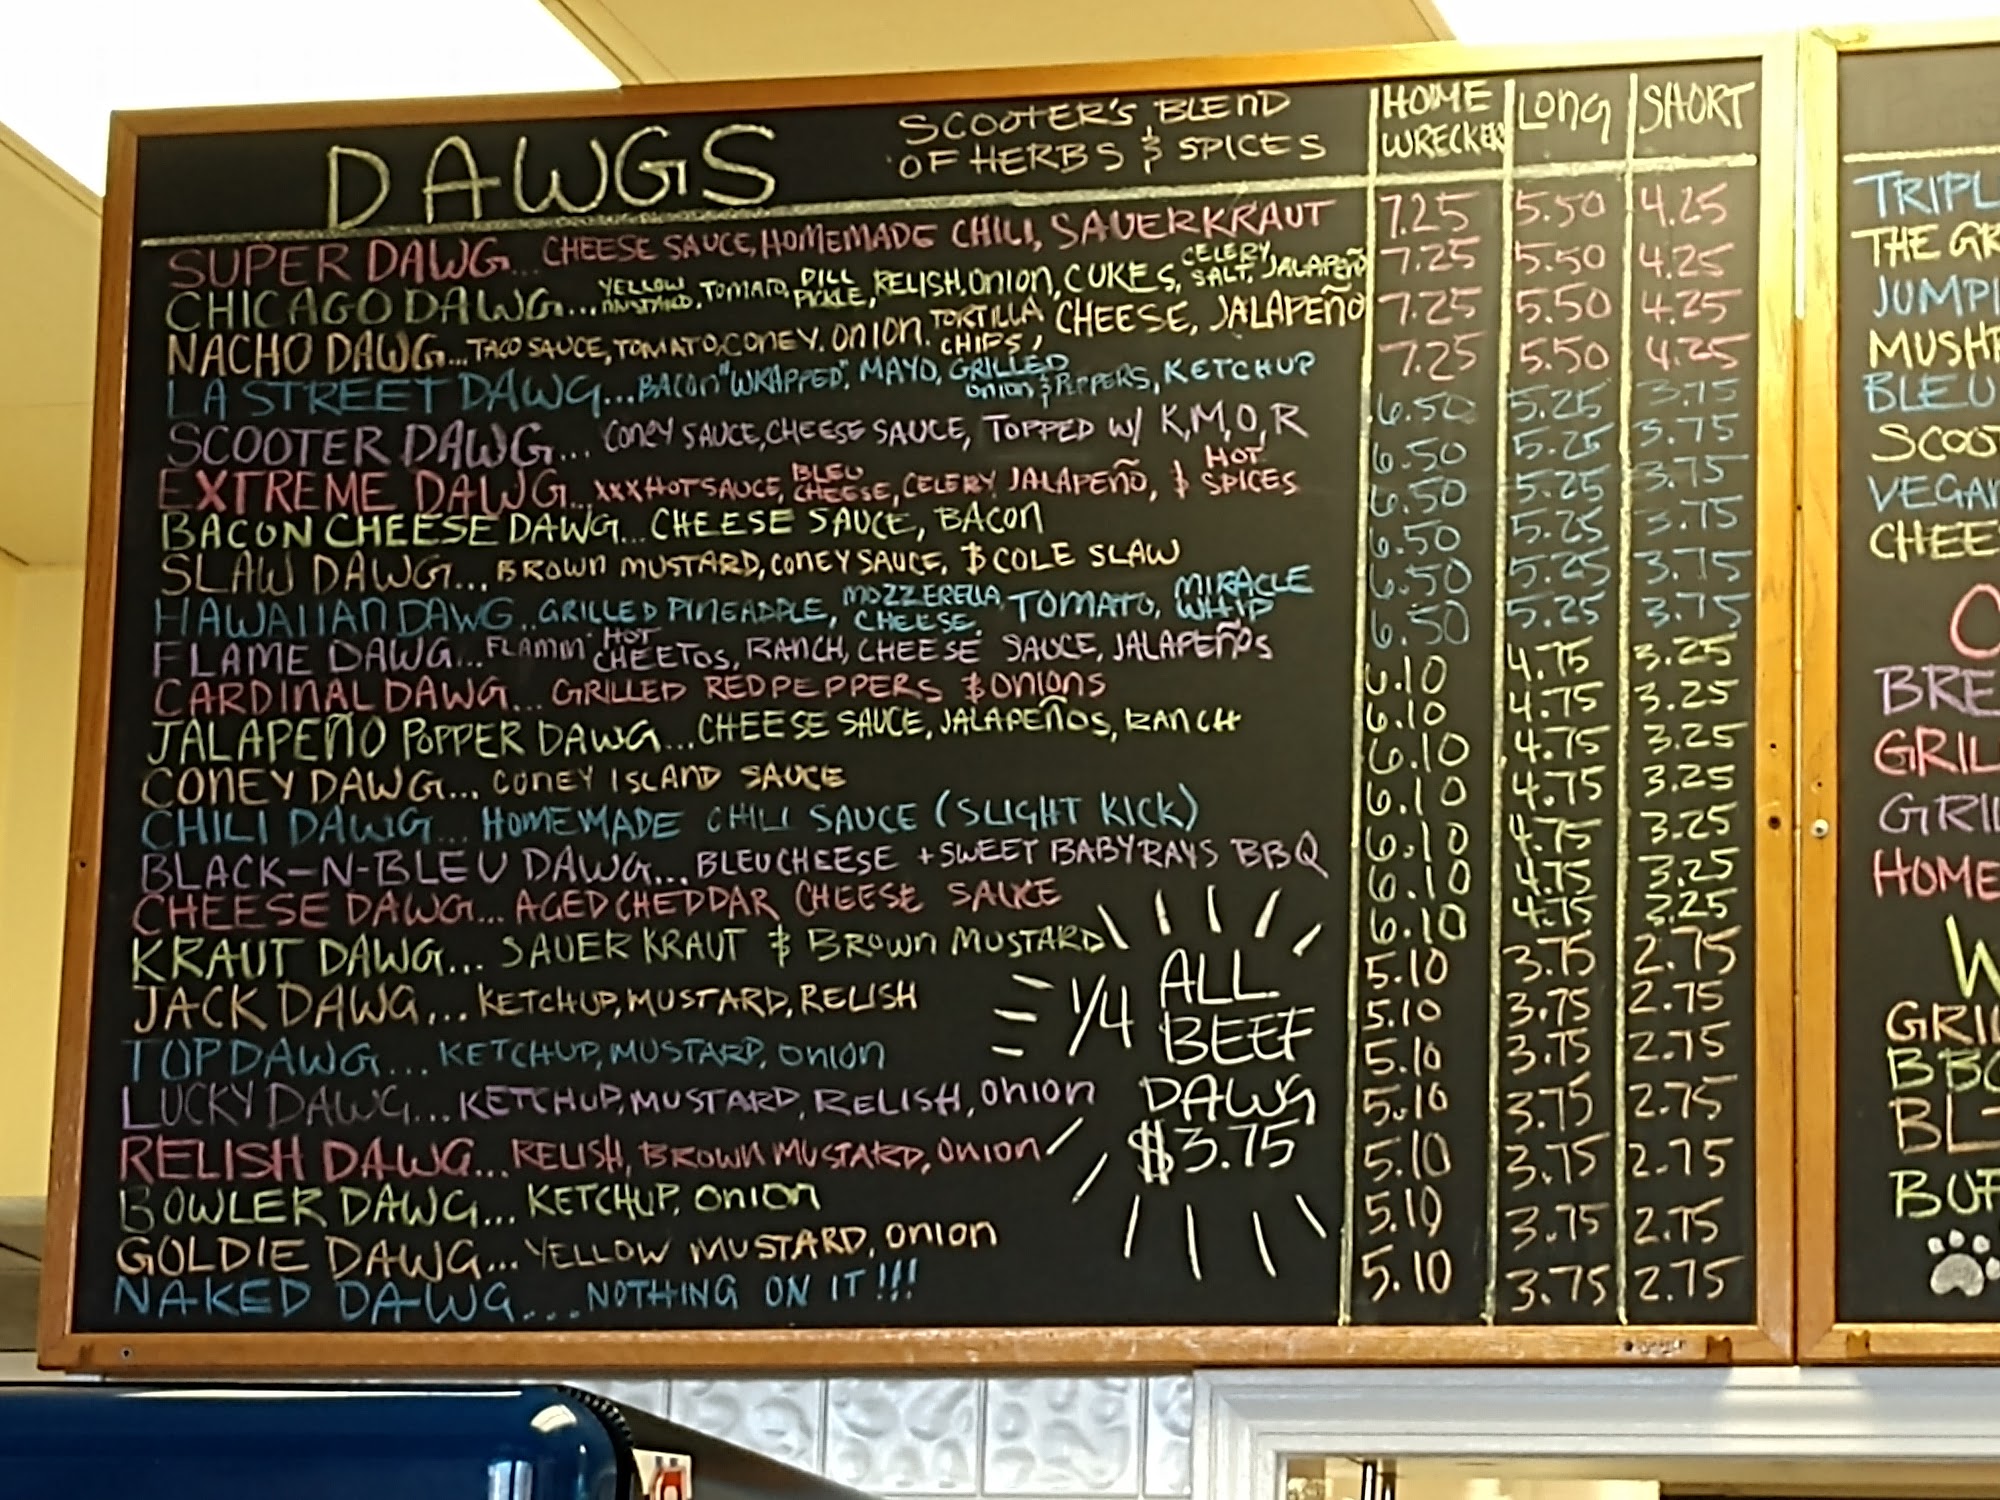 DAWGS SCOOTER'S BLEND OF HERBS & SPICES HOME WRECKER LONG SHORT
SUPER DAWG... CHEESE SAUCE, HOMEMADE CHILI, SAUERKRAUT 7.25 5.50 4.25
CHICAGO DAWG... YELLOW MUSTARD, TOMATO, DILL PICKLE, RELISH, ONION, CUKES, CELERY SALT, JALAPEÑO 7.25 5.50 4.25
NACHO DAWG... TACO SAUCE, TOMATO, CONEY, ONION, TORTILLA CHIPS, CHEESE, JALAPEÑO 7.25 5.50 4.25
LA STREET DAWG... BACON "WRAPPED", MAYO, GRILLED ONION & PEPPERS, KETCHUP 7.25 5.50 4.25
SCOOTER DAWG... CONEY SAUCE, CHEESE SAUCE, TOPPED W/ K,M,O,R 6.50 5.25 3.75
EXTREME DAWG... XXX HOT SAUCE, BLEU CHEESE, CELERY, JALAPEÑO, & HOT SPICES 6.50 5.25 3.75
BACON CHEESE DAWG... CHEESE SAUCE, BACON 6.50 5.25 3.75
SLAW DAWG... BROWN MUSTARD, CONEY SAUCE, & COLE SLAW 6.50 5.25 3.75
HAWAIIAN DAWG... GRILLED PINEAPPLE, MOZZERELLA CHEESE, TOMATO, MIRACLE WHIP 6.50 5.25 3.75
FLAME DAWG... FLAMIN' HOT CHEETOS, RANCH, CHEESE SAUCE, JALAPEÑOS 6.50 5.25 3.75
CARDINAL DAWG... GRILLED RED PEPPERS & ONIONS 6.10 4.75 3.25
JALAPEÑO POPPER DAWG... CHEESE SAUCE, JALAPEÑOS, RANCH 6.10 4.75 3.25
CONEY DAWG... CONEY ISLAND SAUCE 6.10 4.75 3.25
CHILI DAWG... HOMEMADE CHILI SAUCE (SLIGHT KICK) 6.10 4.75 3.25
BLACK-N-BLEU DAWG... BLEU CHEESE + SWEET BABY RAYS BBQ 6.10 4.75 3.25
CHEESE DAWG... AGED CHEDDAR CHEESE SAUCE 6.10 4.75 3.25
KRAUT DAWG... SAUER KRAUT & BROWN MUSTARD 6.10 4.75 3.25
JACK DAWG... KETCHUP, MUSTARD, RELISH 5.10 3.75 2.75
TOP DAWG... KETCHUP, MUSTARD, ONION 5.10 3.75 2.75
LUCKY DAWG... KETCHUP, MUSTARD, RELISH, ONION 5.10 3.75 2.75
RELISH DAWG... RELISH, BROWN MUSTARD, ONION 5.10 3.75 2.75
BOWLER DAWG... KETCHUP, ONION 5.10 3.75 2.75
GOLDIE DAWG... YELLOW MUSTARD, ONION 5.10 3.75 2.75
NAKED DAWG... NOTHING ON IT!!! 5.10 3.75 2.75
1/4 ALL
BEEF
DAWG
$3.75
TRIPL
THE GR
JUMPI
MUSH
BLEU
SCOO
VEGA
CHEE
BRE
GRIL
GRIL
HOME
GRIL
BB
BL
BUF